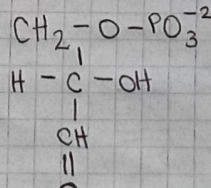 CH₂ - O - PO₃⁻²
|
H - C - OH
|
CH
||